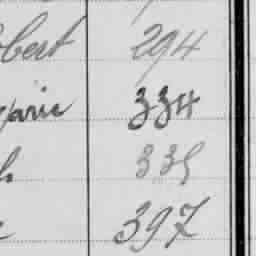 obert 294
parie 334
335
397